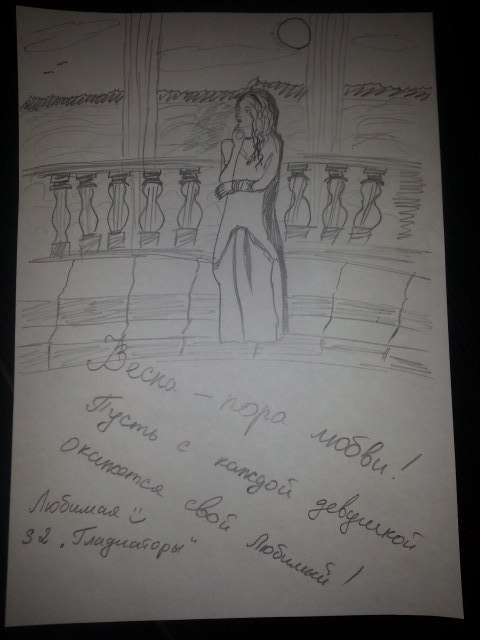 Весна – пора любви!
Пусть с каждой девушкой
окажется свой Любимый!
Любимая
32 „Гладиаторы“